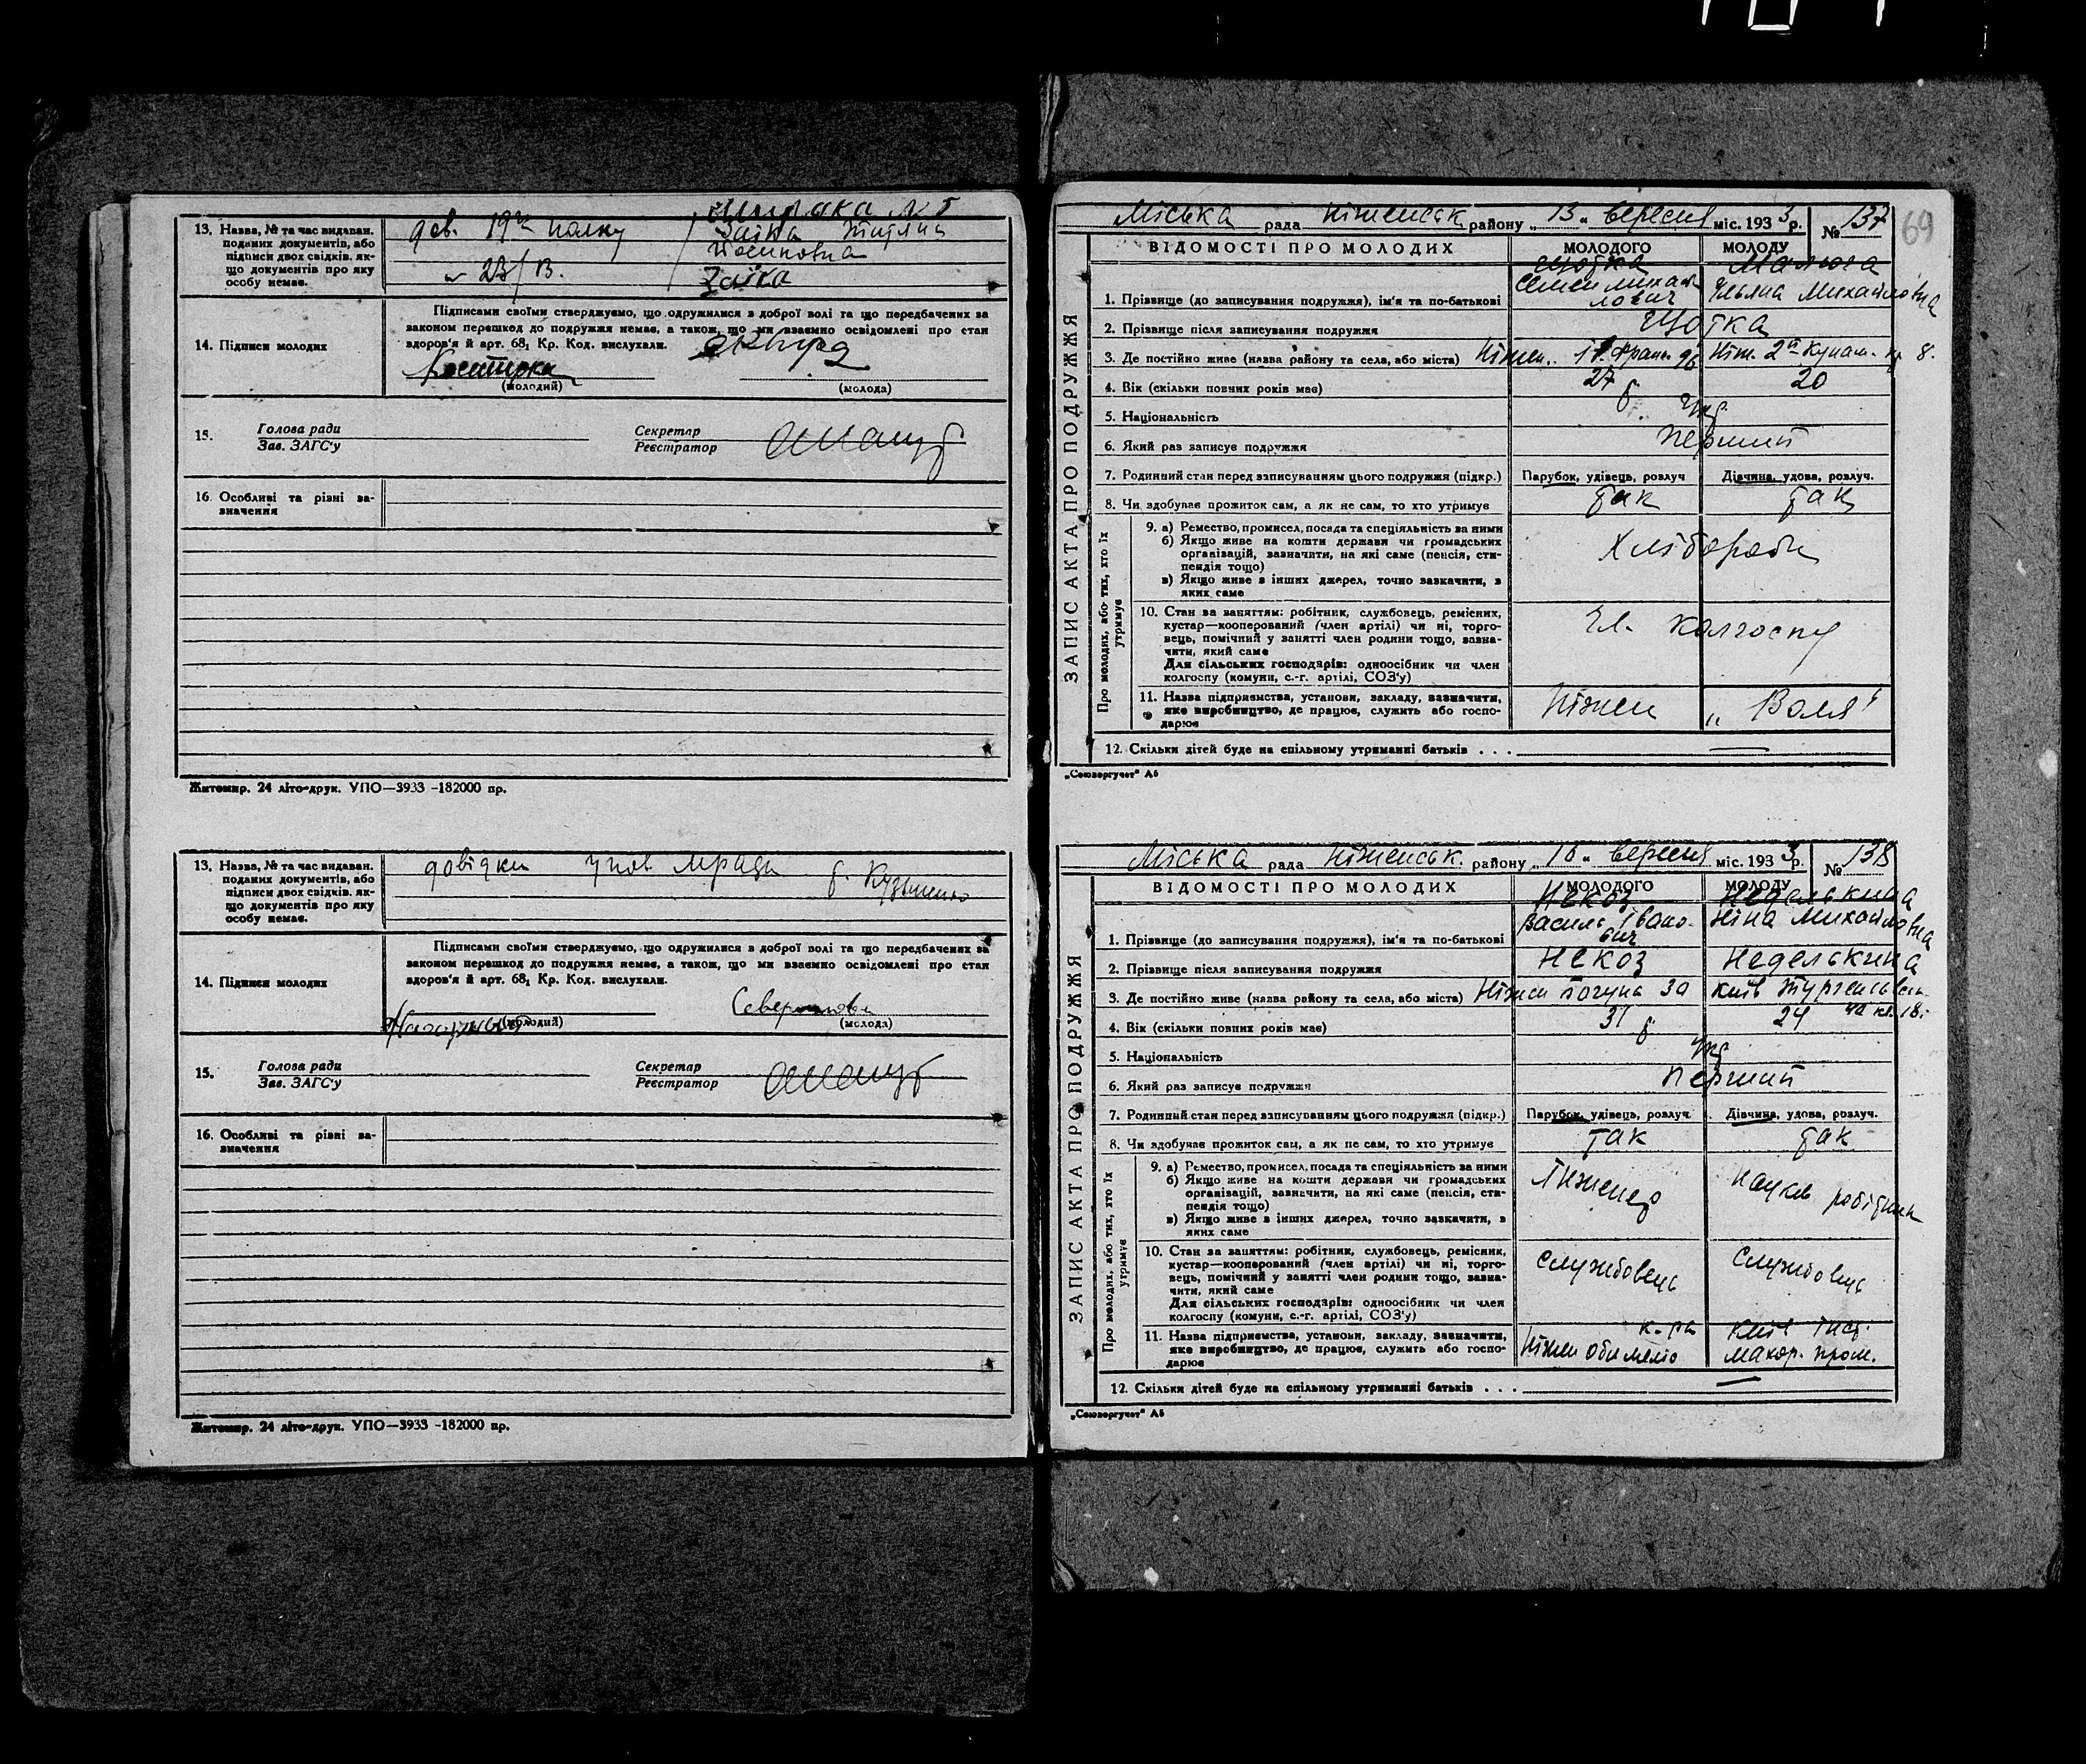 13. Назва, № та час видаван.
поданих документів, або
підписи двох свідків, як-
що документів про яку
особу немає.
дов. 19го полку
23/13.
Широка № 5
Заїка Тетяна
Йосиповна
Заїка
Підписами своїми стверджуємо, що одружилися в доброї волі та що передбачених за
законом перешкод до подружжя немає, а також, що ми взаємно освідомлені про стан
здоров'я й арт. 68₁ Кр. Код. вислухали.
14. Підписи молодих
(молодий)
(молода)
15.
Голова ради
Зав. ЗАГС'у
Секретар
Реєстратор
16. Особливі та різні за-
значення
Житомир. 24 літо-друк. УПО—3933 -182000 пр.
13. Назва, № та час видаван.
поданих документів, або
підписи двох свідків, як-
що документів про яку
особу немає.
довідки
Кузьменко
Підписами своїми стверджуємо, що одружилися в доброї волі та що передбачених за
законом перешкод до подружжя немає, а також, що ми взаємно освідомлені про стан
здоров'я й арт. 68₁ Кр. Код. вислухали.
14. Підписи молодих
(молодий)
(молода)
15.
Голова ради
Зав. ЗАГС'у
Секретар
Реєстратор
16. Особливі та різні за-
значення
Житомир. 24 літо-друк. УПО—3933 -182000 пр.
69
Міська рада Ніженськ району „13„ вересня міс. 1933 р. № 137
ЗАПИС АКТА ПРО ПОДРУЖЖЯ
ВІДОМОСТІ ПРО МОЛОДИХ МОЛОДОГО МОЛОДУ
Щотка Малюга
1. Прізвище (до записування подружжя), ім'я та по-батькові Семен Михайлович Ульяна Михайловна
2. Прізвище після записування подружжя Щотка
3. Де постійно живе (назва району та села, або міста) Ніжен. 96 Ніж. 2га 8.
4. Вік (скільки повних років має) 27 20
5. Національність Укр.
6. Який раз записує подружжя перший
7. Родинний стан перед записуванням цього подружжя (підкр.) Парубок, удівець, розлуч Дівчина, удова, розлуч.
8. Чи здобуває прожиток сам, а як не сам, то хто утримує так так
Про молодих, або тих, хто їх утримує
9. а) Ремество, промисел, посада та спеціяльність за ними
б) Якщо живе на кошти держави чи громадських
організацій, зазначити, на які саме (пенсія, сти-
пендія тощо)
в) Якщо живе в інших джерел, точно зазначити, в
яких саме
Хлібороби
10. Стан за заняттям: робітник, службовець, ремісник,
кустар—кооперований (член артілі) чи ні, торго-
вець, помічний у занятті член родини тощо, зазна-
чити, який саме
Для сільських господарів: одноосібник чи член
колгоспу (комуни, с.-г. артілі, СОЗ'у)
Чл. колгоспу
11. Назва підприємства, установи, закладу, зазначити,
яке виробництво, де працює, служить або госпо-
дарює
Ніжен „Воля"
12. Скільки дітей буде на спільному утриманні батьків . . . —
„Союзоргучет" А5
Міська рада Ніженськ. району „16„ вересня міс. 1933 р. № 138
ЗАПИС АКТА ПРО ПОДРУЖЖЯ
ВІДОМОСТІ ПРО МОЛОДИХ МОЛОДОГО МОЛОДУ
Некоз Неделькина
1. Прізвище (до записування подружжя), ім'я та по-батькові Василь Іванович Ніна Михайловна
2. Прізвище після записування подружжя Некоз Неделькина
3. Де постійно живе (назва району та села, або міста) Ніжен Гогуна 30 Київ Тургенівськ 18.
4. Вік (скільки повних років має) 31 24
5. Національність Укр.
6. Який раз записує подружжя перший
7. Родинний стан перед записуванням цього подружжя (підкр.) Парубок, удівець, розлуч. Дівчина, удова, розлуч.
8. Чи здобуває прожиток сам, а як не сам, то хто утримує так так
Про молодих, або тих, хто їх утримує
9. а) Ремество, промисел, посада та спеціяльність за ними
б) Якщо живе на кошти держави чи громадських
організацій, зазначити, на які саме (пенсія, сти-
пендія тощо)
в) Якщо живе в інших джерел, точно зазначити, в
яких саме
Інженер Науков робітник
10. Стан за заняттям: робітник, службовець, ремісник,
кустар—кооперований (член артілі) чи ні, торго-
вець, помічний у занятті член родини тощо, зазна-
чити, який саме
Для сільських господарів: одноосібник чи член
колгоспу (комуни, с.-г. артілі, СОЗ'у)
Службовець Службовець
11. Назва підприємства, установи, закладу, зазначити,
яке виробництво, де працює, служить або госпо-
дарює
Ніжен к-ра Київ Інст. махор. пром.
12. Скільки дітей буде на спільному утриманні батьків . . . —
„Союзоргучет" А5